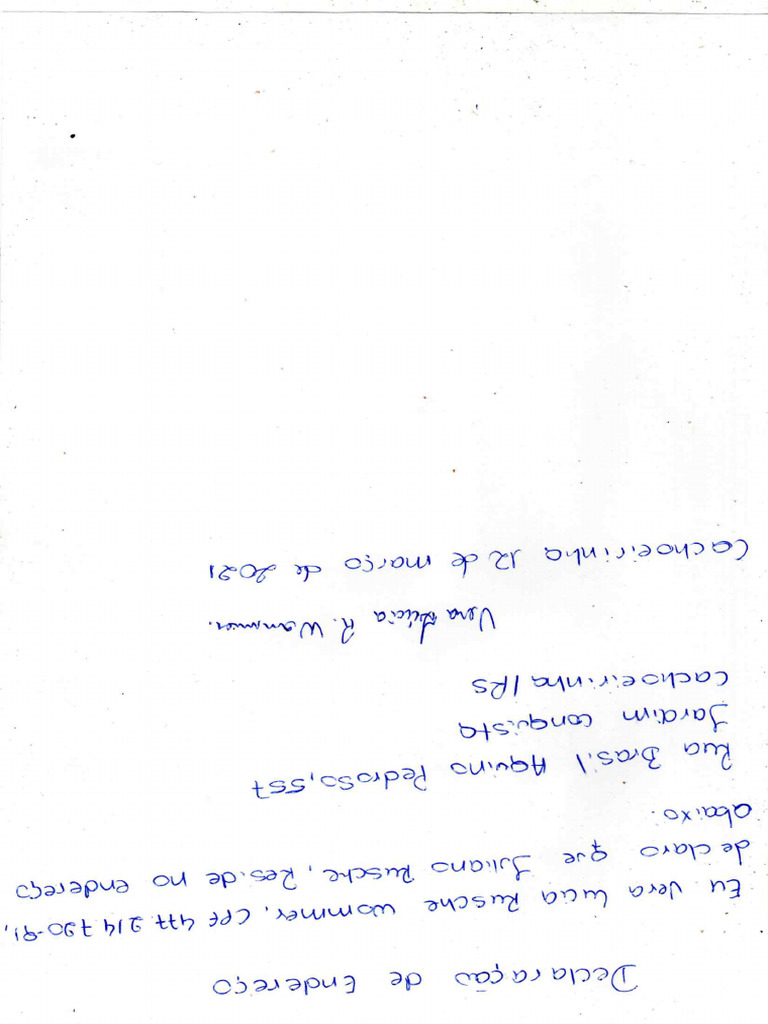 Declaração de Endereço
Eu Vera Lucia Rusche Wommer, CPF 477 214 790-91,
declaro que Juliano Rusche, Reside no endereço
abaixo.
Rua Brasil Aquino Pedroso, 557
Jardim conquista
Cachoeirinha/RS
Vera Lúcia R. Wommer.
Cachoeirinha 12 de março de 2021